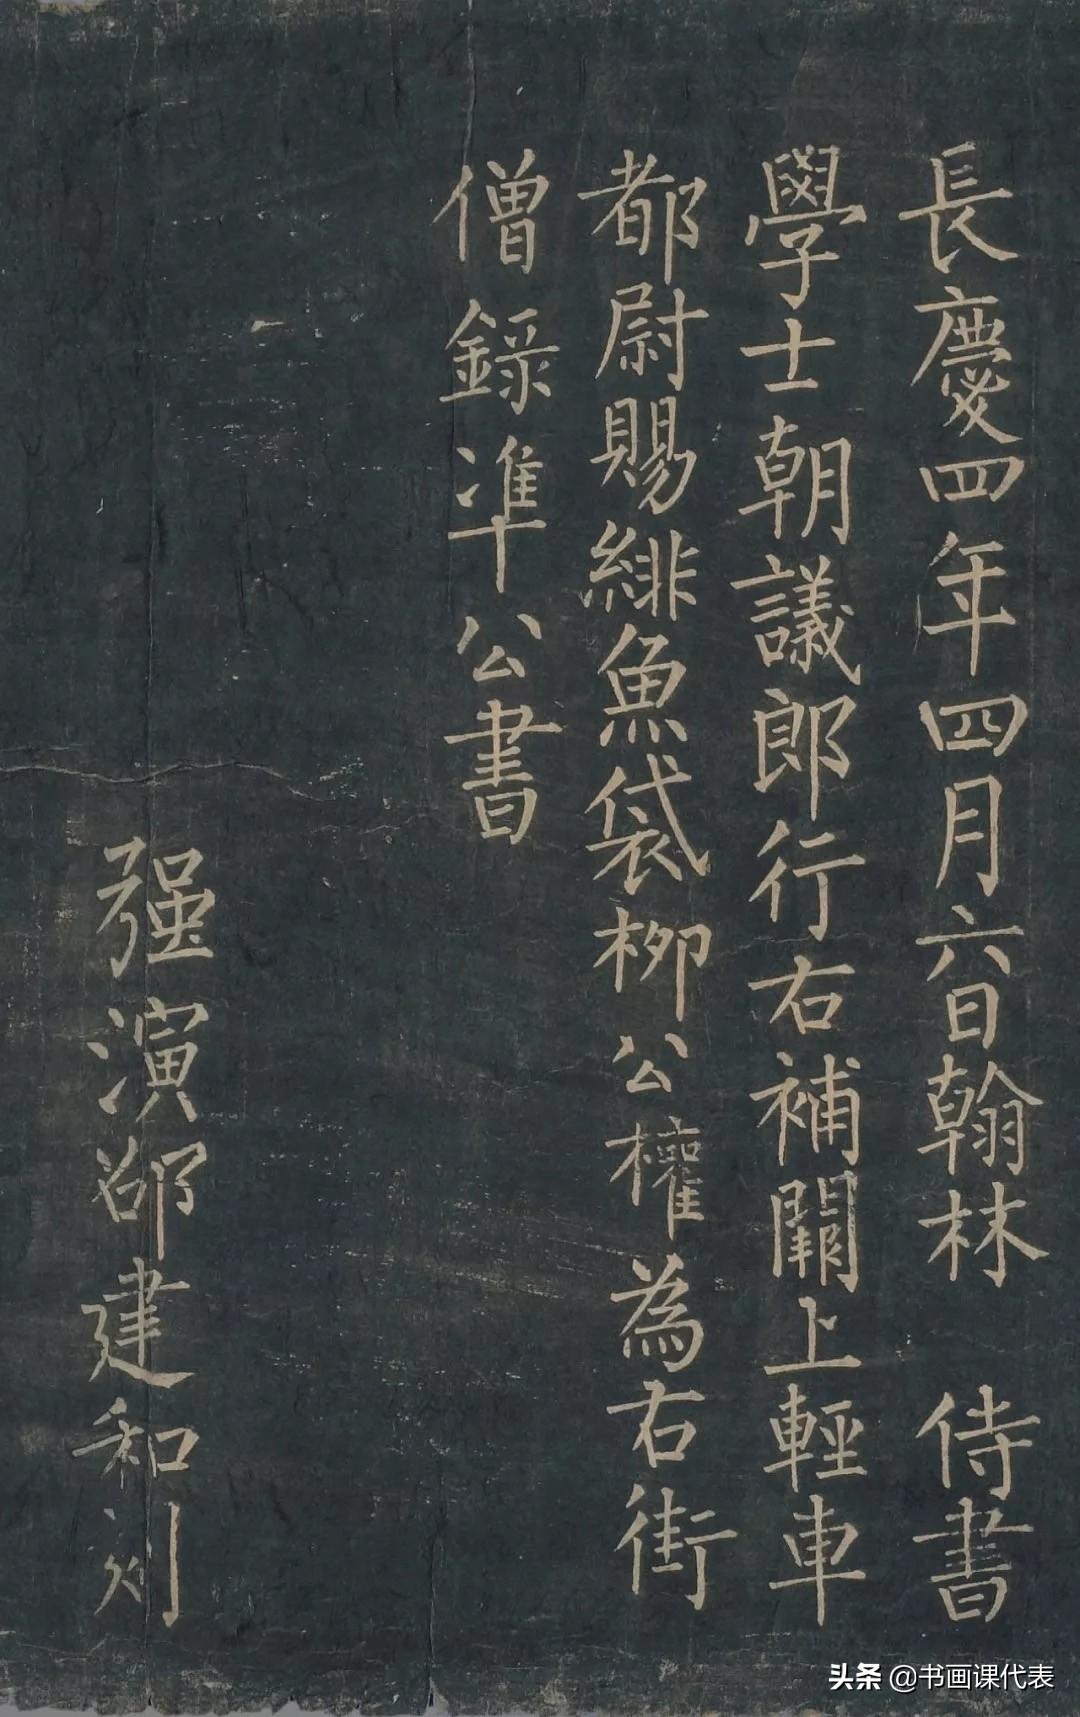 長慶四年四月六日翰林 侍書
學士朝議郎行右補闕上輕車
都尉賜緋魚袋柳公權為右街
僧錄準公書
强演邵建和刻
头条 @书画课代表